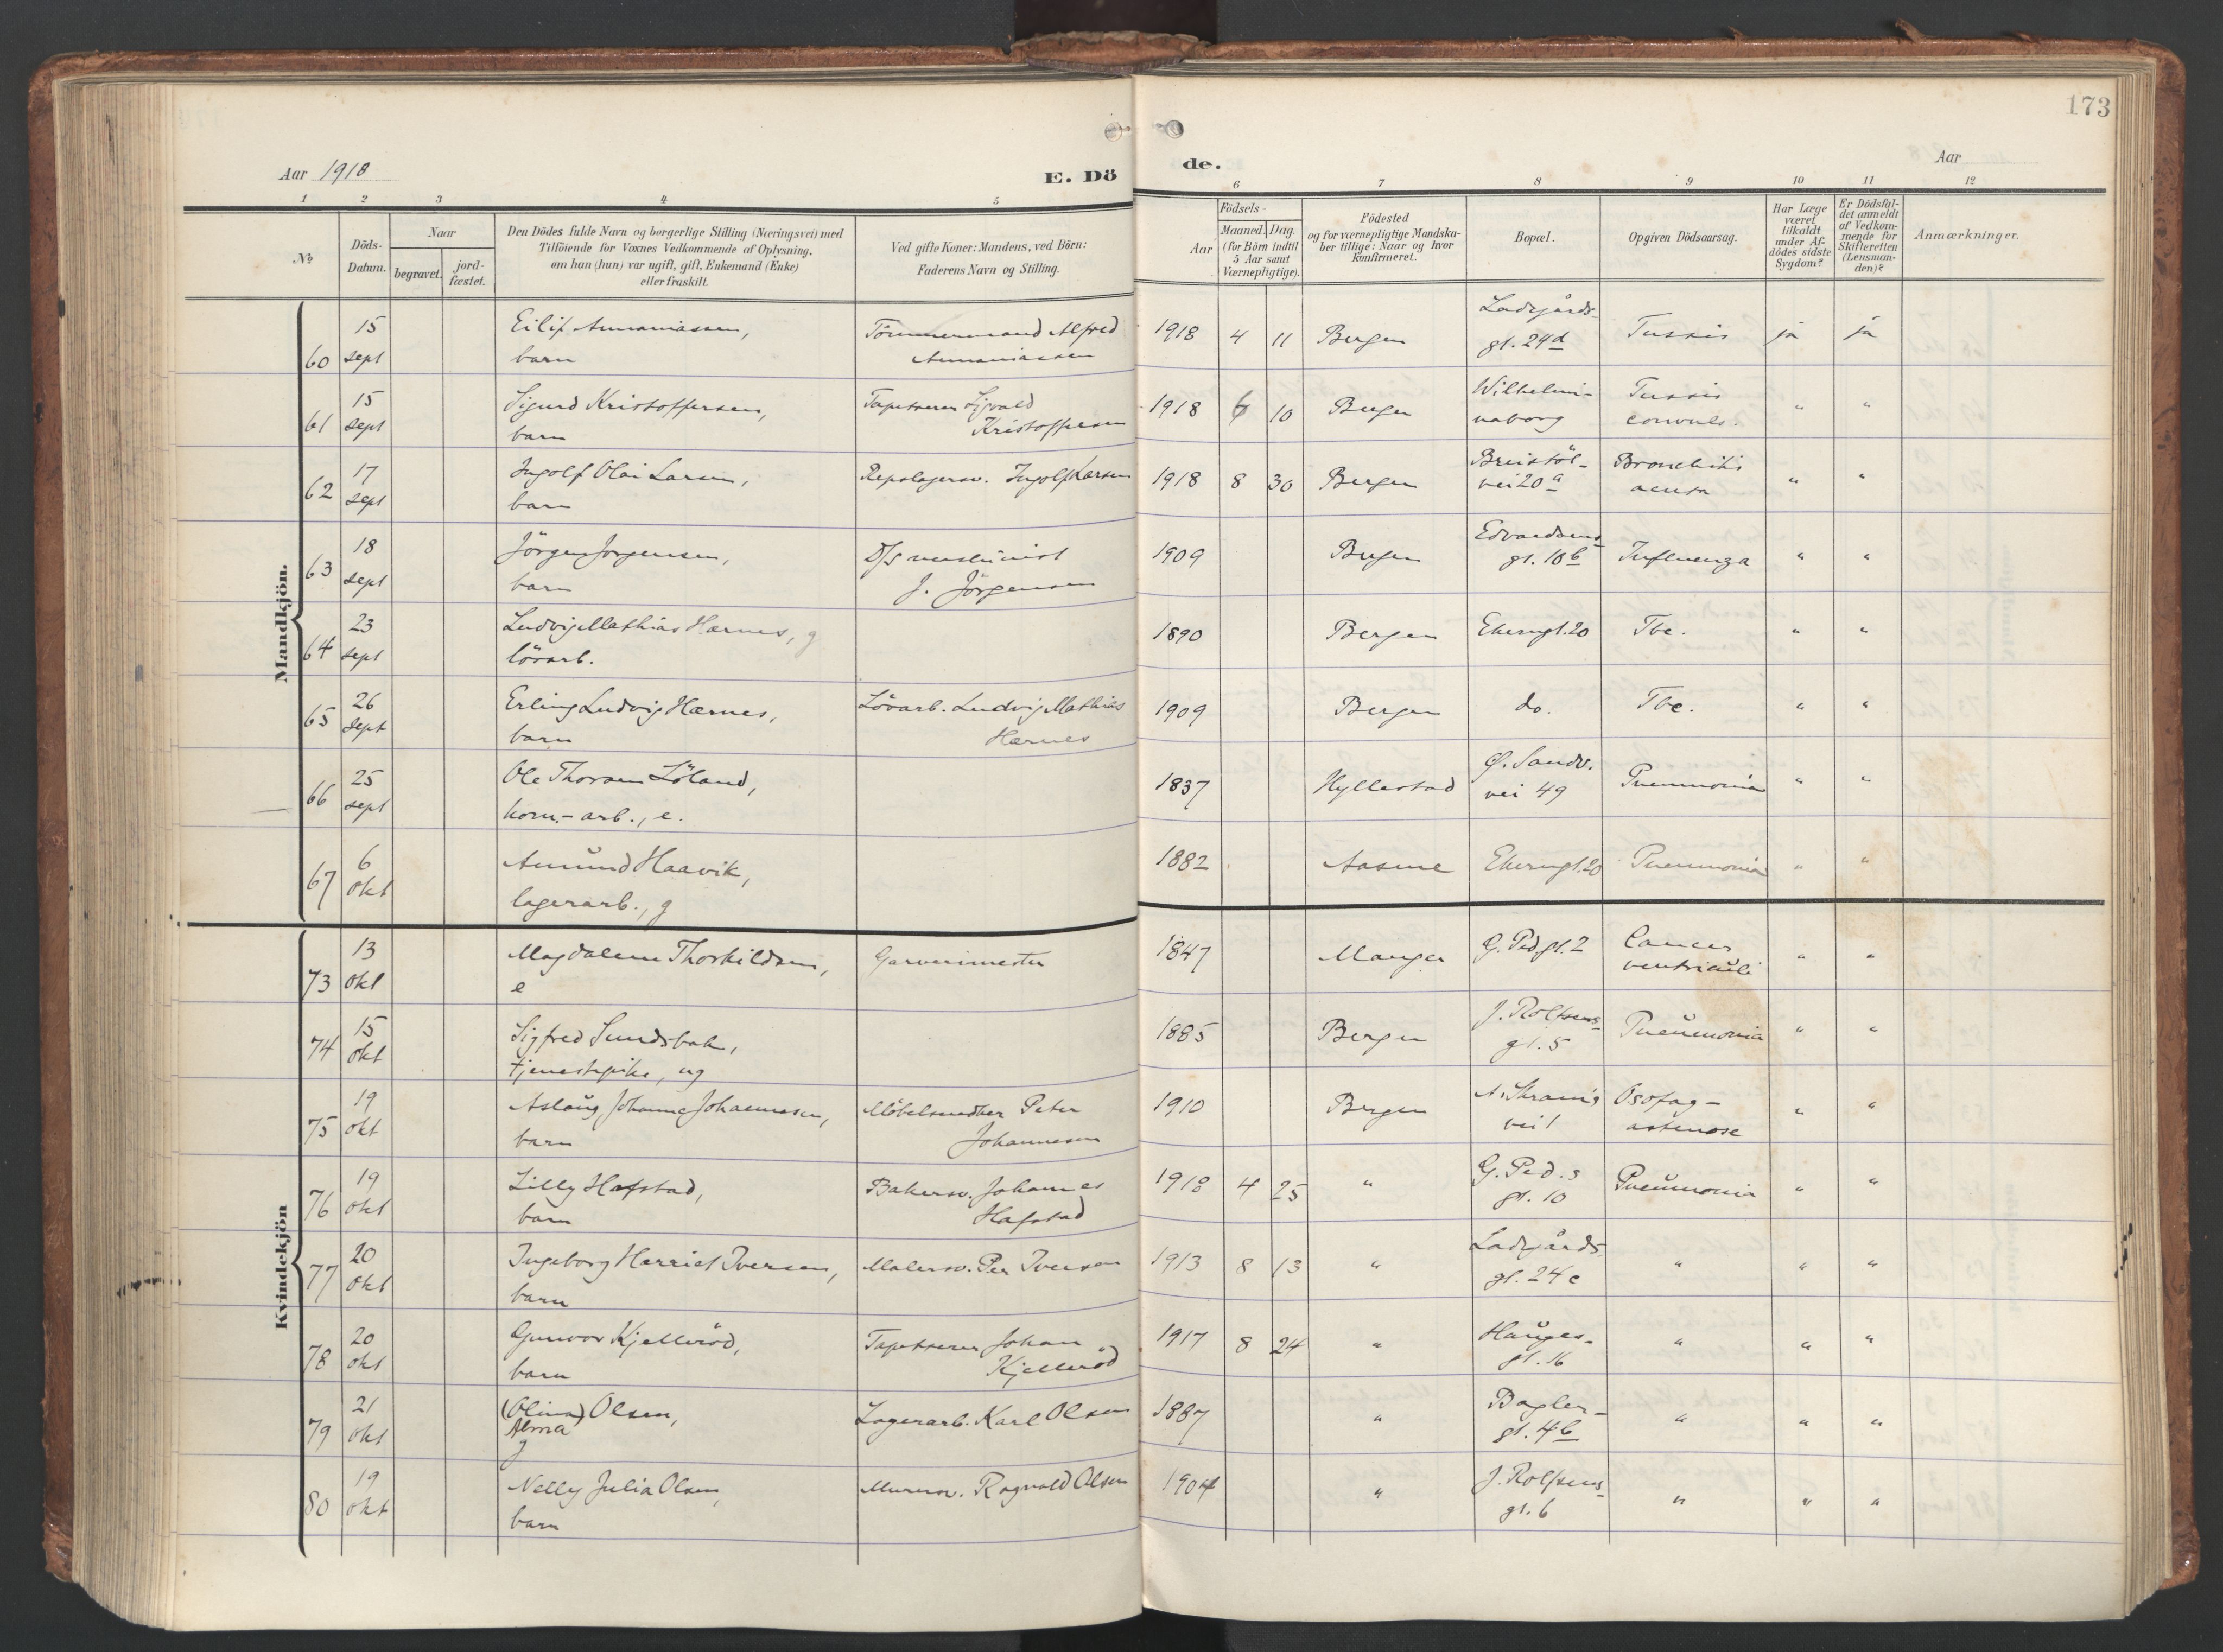 173
Aar 1918
E. Dö
de.
Aar
1 2 3 4 5 6 7 8 9 10 11 12
No
Döds-
Datum.
Naar
begravet.
jord-
fæstet.
Den Dödes fulde Navn og borgerlige Stilling (Næringsvei) med
Tilföiende for Voxnes Vedkommende af Oplysning,
om han (hun) var ugift, gift, Enkemand (Enke)
eller fraskilt.
Ved gifte Koner: Mandens, ved Börn:
Faderens Navn og Stilling.
Födsels-
Aar
Maaned. Dag.
(for Börn indtil
5 Aar samt
Værnepligtige).
Födested
og for værnepligtige Mandska-
ber tillige: Naar og hvor
konfirmeret.
Bopæl.
Opgiven Dödsaarsag.
Har Læge
været
tilkaldt
under Af-
dödes sidste
Sygdom?
Er Dödsfal-
det anmeldt
af Vedkom-
mende for
Skifteretten
(Lensman-
den)?
Anmærkninger.
Mandkjön.
60 15 sept Eilif Annaniassen, Tömmermand Alfred 1918 4 11 Bergen Ladegårds- Tussis ja ja
barn Annaniassen gt. 24d
61 15 sept Sigurd Kristoffersen, Tapetserer 1918 6 10 Bergen Wilhelmi- Tussis " "
barn Kristoffersen naborg convuls.
62 17 sept Ingolf Olai Larsen, Repslagersv. Ingolf Larsen 1918 8 30 Bergen Breistöl- Bronchitis " "
barn vei 20a acuta
63 18 sept Jörgen Jorgensen, D/S maskinist 1909 Bergen Edvardsens- Influenza " "
barn J. Jörgensen gt. 18b
64 23 sept Ludvig Mathias Hærnes, g 1890 Bergen gt. 20 Tbc. " "
lösarb.
65 26 sept Erling Ludvig Hærnes, Lösarb. Ludvig Mathias 1909 Bergen do. Tbc. " "
barn Hærnes
66 25 sept Ole Thorsen Löland, 1837 Hyllestad Ø. Sandv. Pneumonia " "
kom.-arb., e. vei 49
67 6 okt Amund Haavik, 1882 Aasene gt. 20 Pneumonia " "
lagerarb., g
Kvindekjön
73 13 okt Magdalene Thorkildsen, Garverimester 1847 Manger G. Ped.gt. 2 Cancer " "
e ventriculi
74 15 okt Sigfred Sundsbak, 1885 Bergen J. Rolfsens- Pneumonia " "
tjenestepike, ug gt. 5
75 19 okt Aslaug Johanne Johannesen, Möbelsnedker Peter 1910 Bergen A. Skrams Osofag- " "
barn Johannesen vei 1 ostenose
76 19 okt Lilly Hafstad, Bakersv. Johannes 1918 4 25 " G. Ped.s Pneumonia " "
barn Hafstad gt. 10
77 20 okt Ingeborg Harriet Iversen, Malersv. Per Iversen 1913 8 13 " Ladegårds- " " "
barn gt. 24c
78 20 okt Gunvor Kjelleröd, Tapetserer Johan 1917 8 24 " Hauges- " " "
barn Kjelleröd gt. 16
79 21 okt (Olina) Olsen, Lagerarb. Karl Olsen 1887 " Bagler- " " "
Alma gt. 4b
g
80 19 okt Nelly Julia Olsen, Murersv. Ragnvald Olsen 1904 " J. Rolfsens- " " "
barn gt. 6